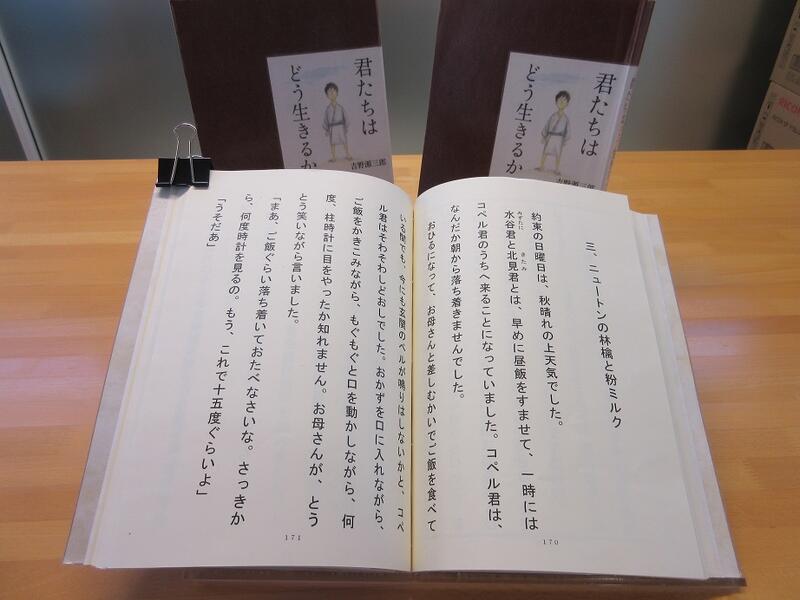 君たちは
どう生きるか
吉野源三郎
君たちは
どう生きるか
吉野源三郎
三、ニュートンの林檎と粉ミルク
約束の日曜日は、秋晴れの上天気でした。
水谷君と北見君とは、早めに昼飯をすませて、一時には
みずたに
きたみ
コペル君のうちへ来ることになっていました。コペル君は、
なんだか朝から落ち着きませんでした。
おひるになって、お母さんと差しむかいでご飯を食べて
170
いる間でも、今にも玄関のベルが鳴りはしないかと、コペ
ル君はそわそわしどおしでした。おかずを口に入れながら、
ご飯をかきこみながら、もぐもぐと口を動かしながら、何
度、柱時計に目をやったか知れません。お母さんが、とう
とう笑いながら言いました。
「まあ、ご飯ぐらい落ち着いておたべなさいな。さっきか
ら、何度時計を見るの。もう、これで十五度ぐらいよ」
「うそだあ」
171
RICOH